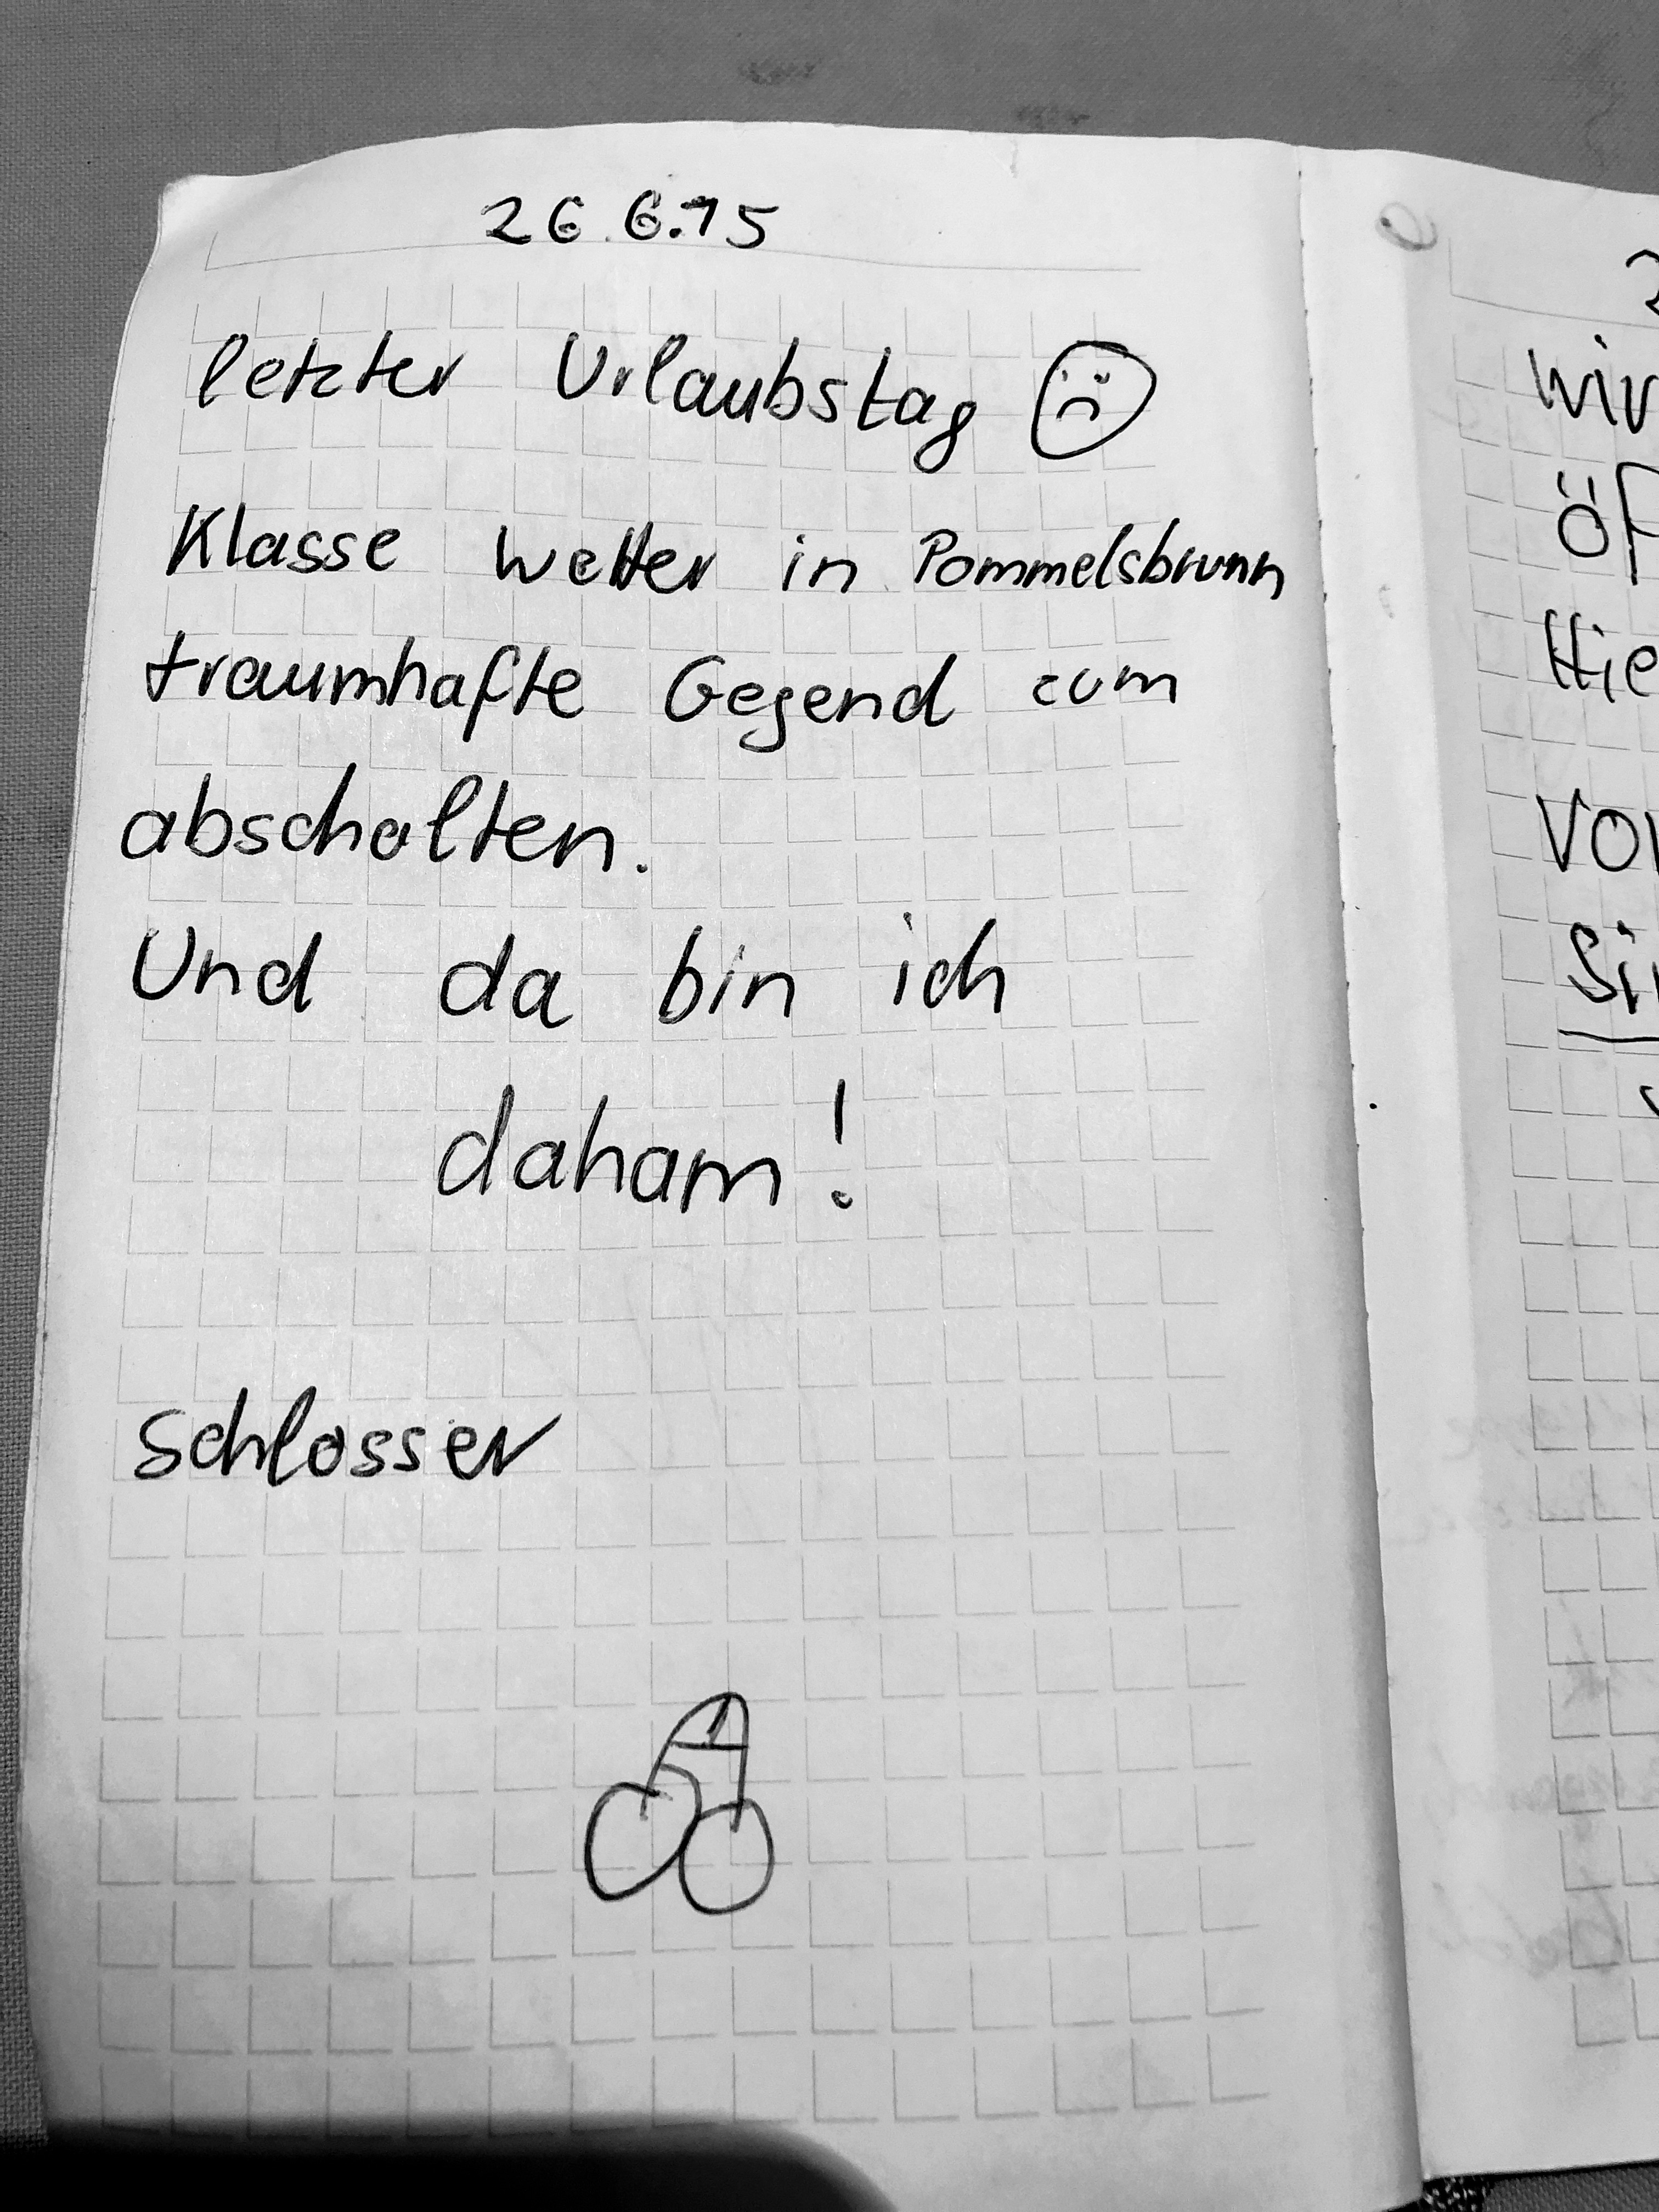 26.6.15
letzter Urlaubstag
Klasse wetter in Pommelsbrunn
traumhafte Gegend zum
abschalten.
Und da bin ich
daham!
Schlosser
wir
Hie